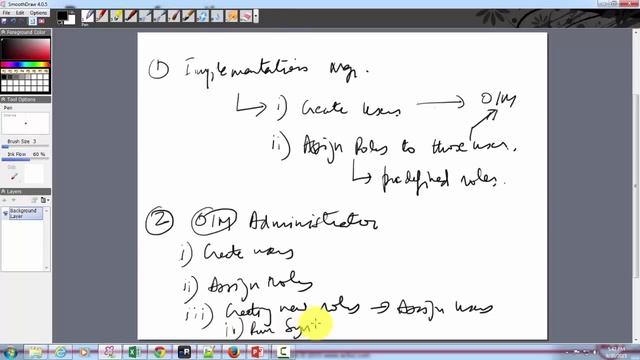 SmoothDraw 4.0.5
Foreground Color
Tool Options
Pen
Brush Size 3
Ink Flow 60 %
Layers
Background Layer
① Implementations Mgr.
i) Create users → OIM
ii) Assign Roles to those user.
predefined roles.
② OIM Administrator
i) Create users
ii) Assign Roles
iii) Creating new roles → Assign users
ii) Run Syn
5:42 PM